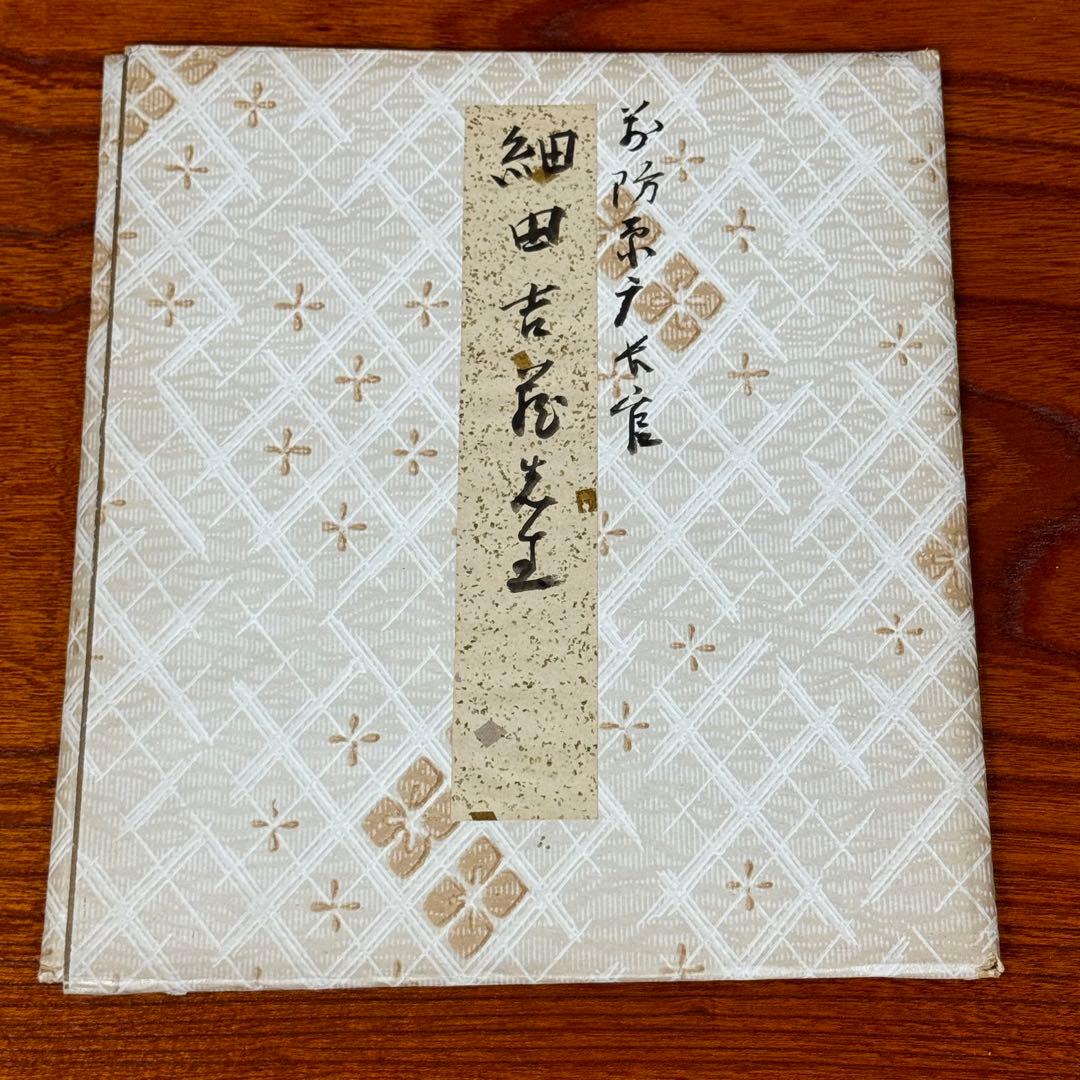 前防衛庁長官
細田吉蔵先生